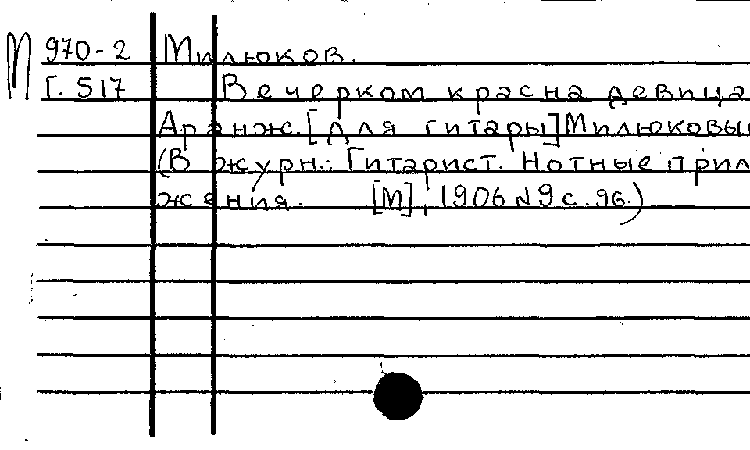 П 970-2 Милюков.
Г. 517 Вечерком красна девица
Аранж. [для гитары] Милюковы
(В журн.: Гитарист. Нотные прил
жения. [М], 1906 №9 с. 96.)